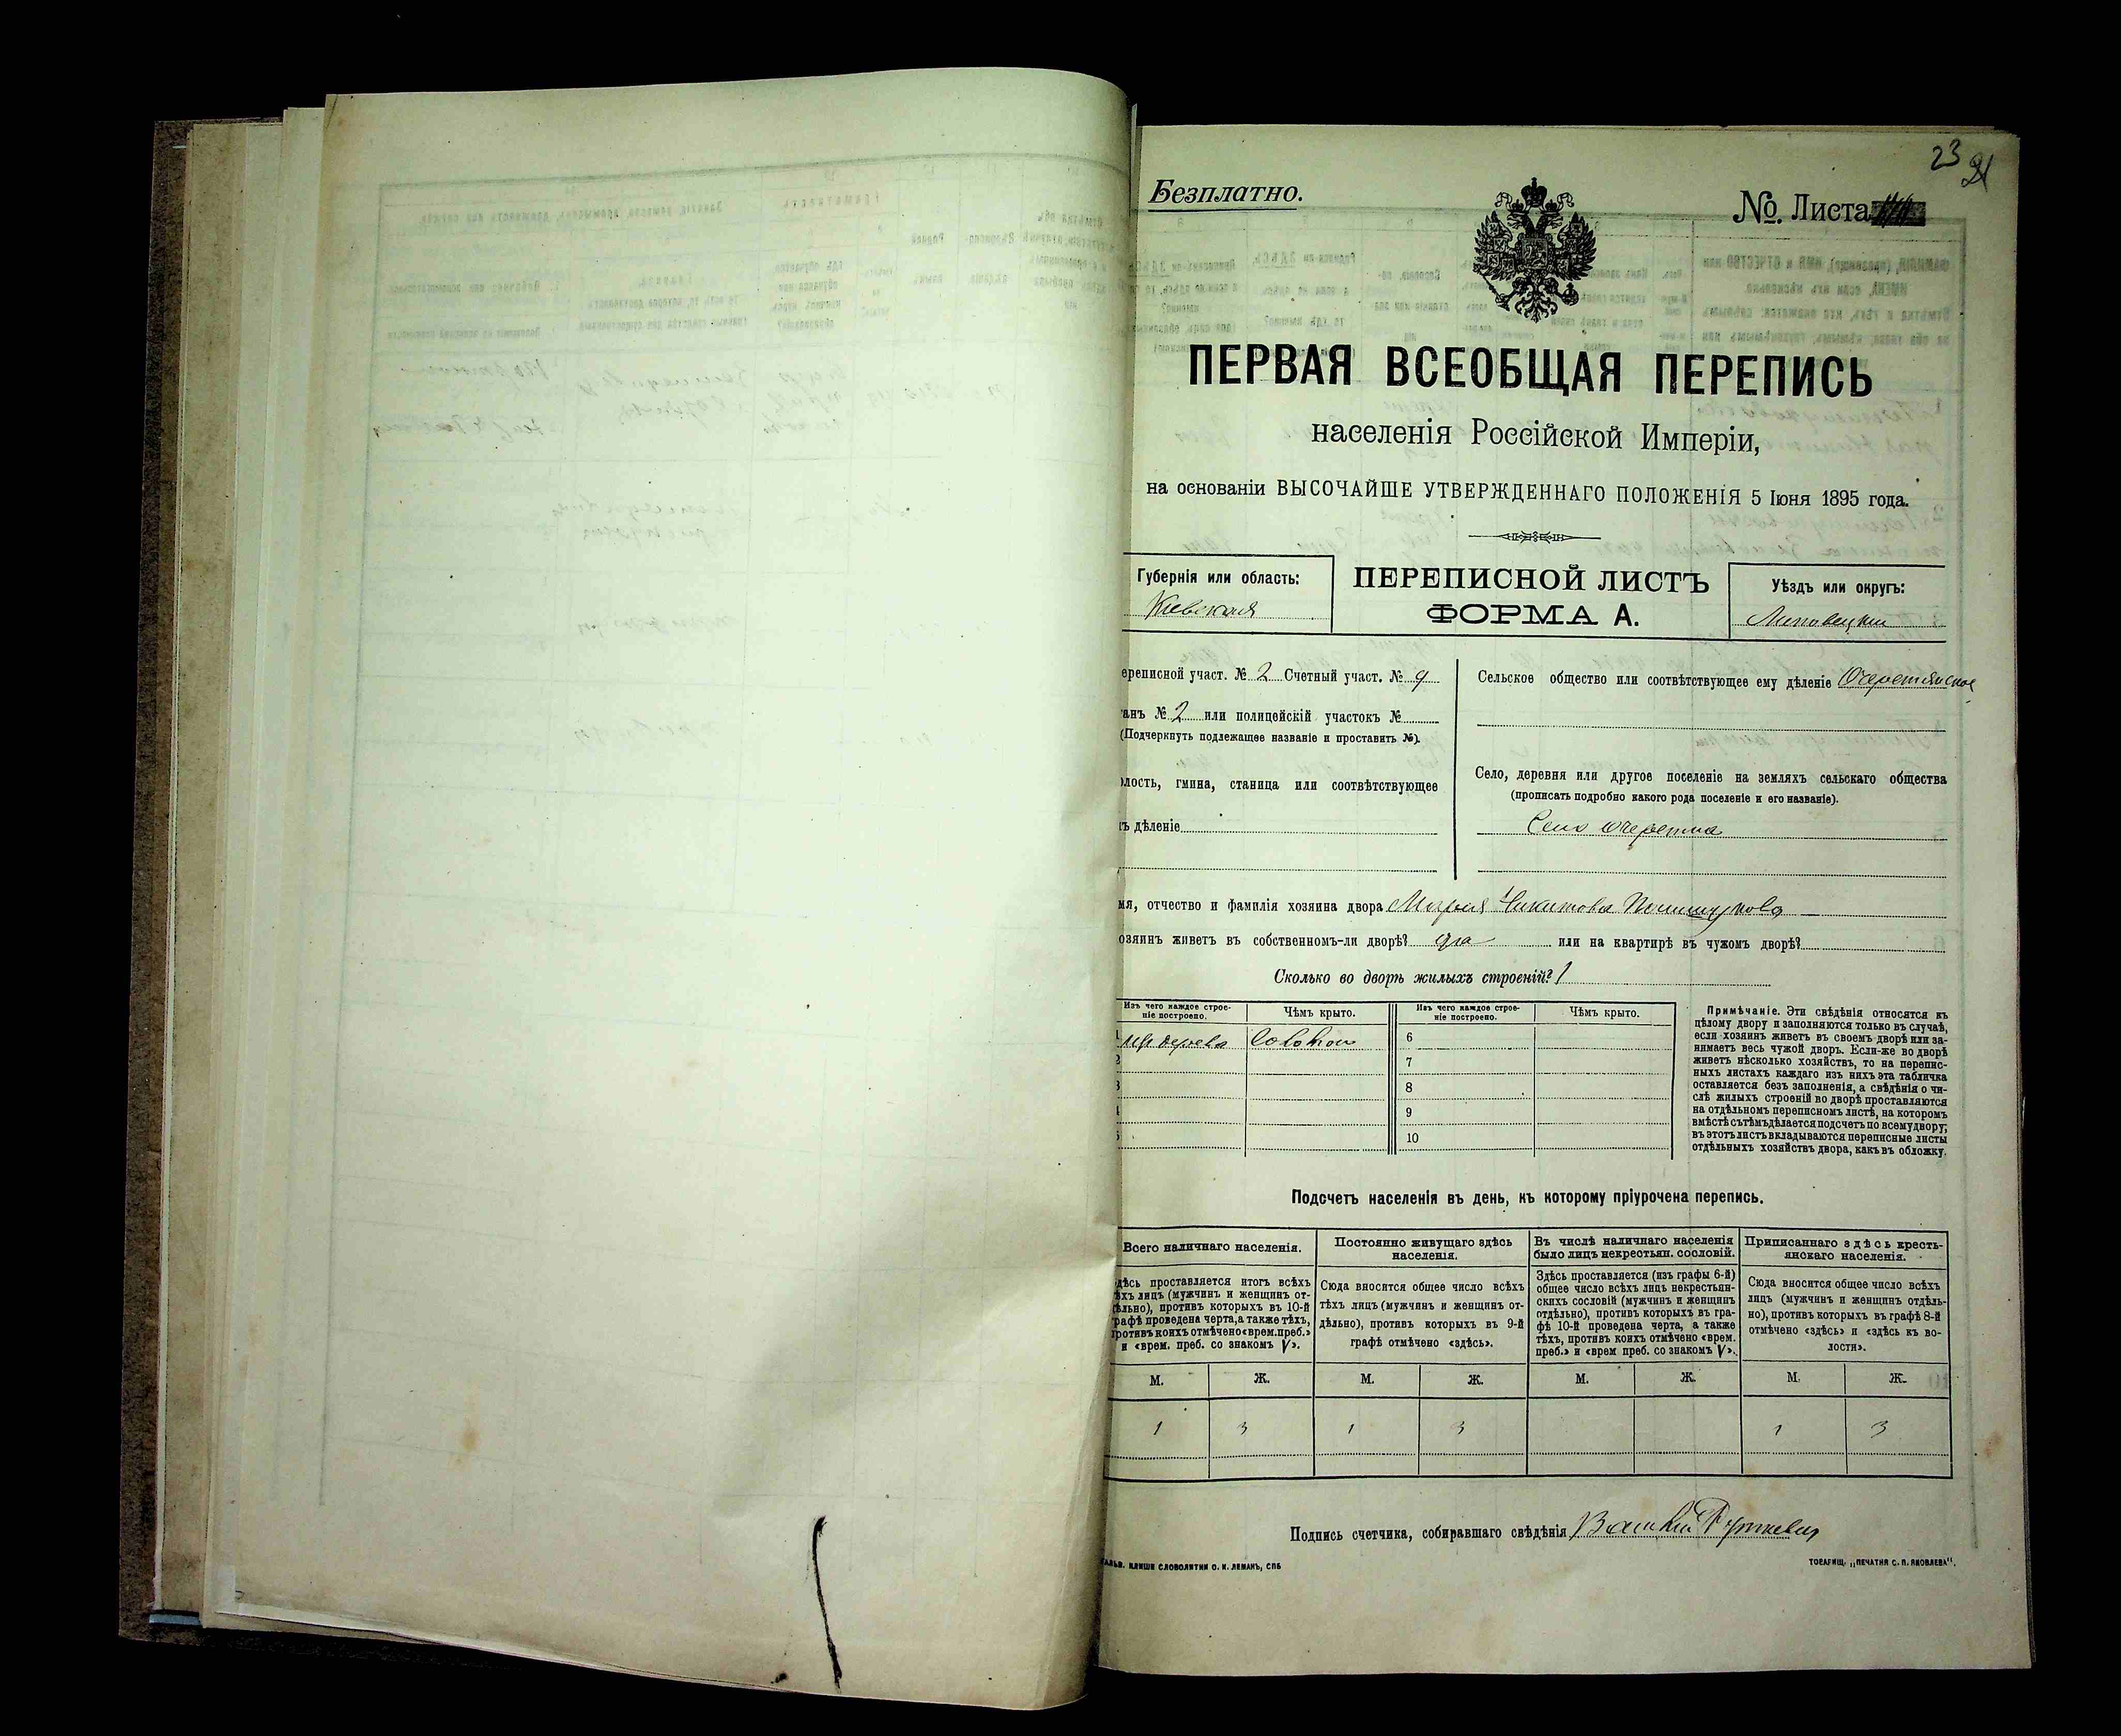 23
21
Безплатно.
№ Листа
ПЕРВАЯ ВСЕОБЩАЯ ПЕРЕПИСЬ
населенія Россійской Имперіи,
на основаніи ВЫСОЧАЙШЕ УТВЕРЖДЕННАГО ПОЛОЖЕНІЯ 5 Іюня 1895 года.
Губернія или область:
Кіевская
ПЕРЕПИСНОЙ ЛИСТЪ
ФОРМА А.
Уѣздъ или округъ:
Липовецкій
ереписной участ. № 2 Счетный участ. № 9
анъ № 2 или полицейскій участокъ №
(Подчеркнуть подлежащее названіе и проставить №).
лость, гмина, станица или соотвѣтствующее
ъ дѣленіе
Сельское общество или соотвѣтствующее ему дѣленіе Очеретянское
Село, деревня или другое поселеніе на земляхъ сельскаго общества
(прописать подробно какого рода поселеніе и его названіе).
Село Очеретна
мя, отчество и фамилія хозяина двора Марія Никитова
озяинъ живетъ въ собственномъ-ли дворѣ? да или на квартирѣ въ чужомъ дворѣ?
Сколько во дворѣ жилыхъ строеній? 1
Изъ чего каждое строе-
ніе построено.
Чѣмъ крыто.
Изъ чего каждое строе-
ніе построено.
Чѣмъ крыто.
1 изъ дерева Соломою
2
3
6
7
8
9
10
Примѣчаніе. Эти свѣдѣнія относятся къ
цѣлому двору и заполняются только въ случаѣ,
если хозяинъ живетъ въ своемъ дворѣ или за-
нимаетъ весь чужой дворъ. Если-же во дворѣ
живетъ нѣсколько хозяйствъ, то на перепис-
ныхъ листахъ каждаго изъ нихъ эта табличка
оставляется безъ заполненія, а свѣдѣнія о чи-
слѣ жилыхъ строеній во дворѣ проставляются
на отдѣльномъ переписномъ листѣ, на которомъ
вмѣстѣ съ тѣмъ дѣлается подсчетъ по всему двору;
въ этотъ листъ вкладываются переписные листы
отдѣльныхъ хозяйствъ двора, какъ въ обложку.
Подсчетъ населенія въ день, къ которому пріурочена перепись.
Всего наличнаго населенія.
дѣсь проставляется итогъ всѣхъ
ѣхъ лицъ (мужчинъ и женщинъ от-
ѣльно), противъ которыхъ въ 10-й
рафѣ проведена черта, а также тѣхъ,
противъ коихъ отмѣчено «врем. преб.»
и «врем. преб. со знакомъ V».
Постоянно живущаго здѣсь
населенія.
Сюда вносится общее число всѣхъ
тѣхъ лицъ (мужчинъ и женщинъ от-
дѣльно), противъ которыхъ въ 9-й
графѣ отмѣчено «здѣсь».
Въ числѣ наличнаго населенія
было лицъ некрестьян. сословій.
Здѣсь проставляется (изъ графы 6-й)
общее число всѣхъ лицъ некрестьян-
скихъ сословій (мужчинъ и женщинъ
отдѣльно), противъ которыхъ въ гра-
фѣ 10-й проведена черта, а также
тѣхъ, противъ коихъ отмѣчено «врем.
преб.» и «врем преб. со знакомъ V».
Приписаннаго здѣсь кресть-
янскаго населенія.
Сюда вносится общее число всѣхъ
лицъ (мужчинъ и женщинъ отдѣль-
но), противъ которыхъ въ графѣ 8-й
отмѣчено «здѣсь» и «здѣсь къ во-
лости».
М. Ж. М. Ж. М. Ж. М. Ж.
1 3 1 3 1 3
Подпись счетчика, собиравшаго свѣдѣнія
КЛИШЕ СЛОВОЛИТНИ О. И. ЛЕМАНЪ, СПБ
ТОВАРИЩ. „ПЕЧАТНЯ С. П. ЯКОВЛЕВА".